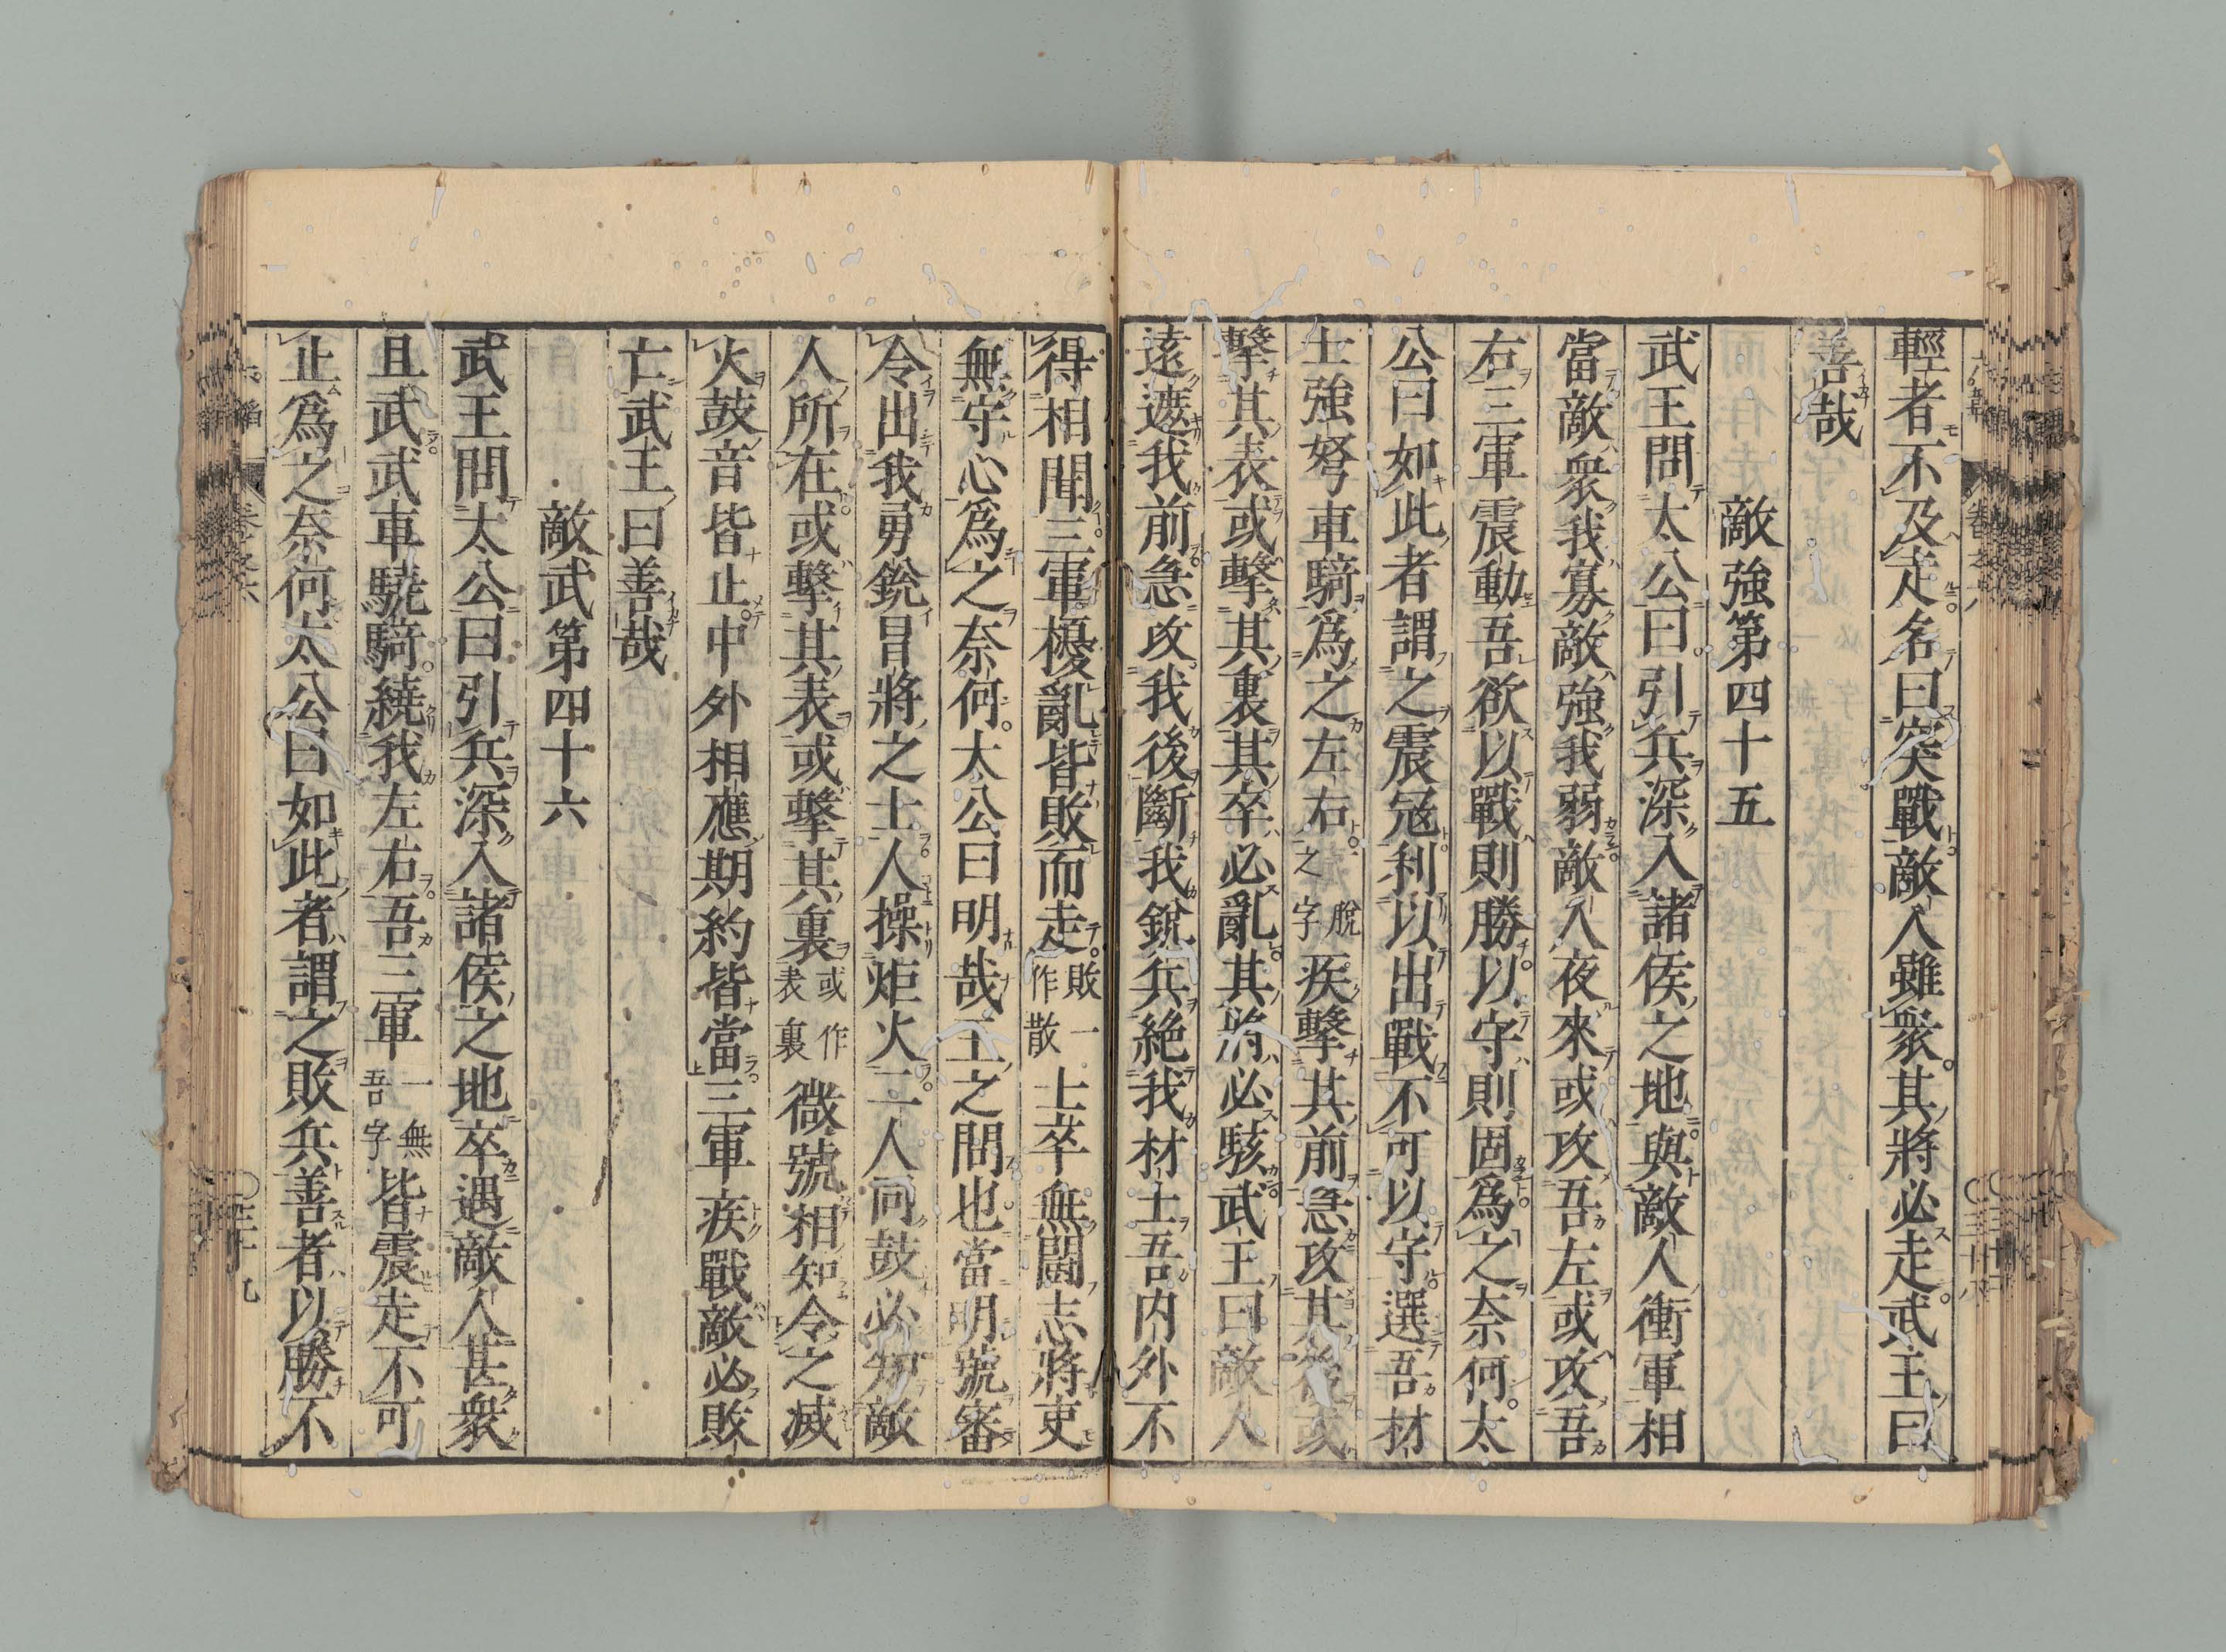 輕者不及走名曰突戰敵人雖衆其將必走武王曰
善哉
敵強第四十五
武王問太公曰引兵深入諸侯之地與敵人衝軍相
當敵衆我寡敵強我弱敵人夜來或攻吾左或攻吾
右三軍震動吾欲以戰則勝以守則固爲之奈何太
公曰如此者謂之震寇利以出戰不可以守選吾材
士強弩車騎爲之左右脫之字疾擊其前急攻其後或
擊其表或擊其裏其卒必亂其將必駭武王曰敵人
遠遮我前急攻我後斷我銳兵絶我材士吾内外不
得相聞三軍擾亂皆敗而走敗一作散士卒無鬪志將吏
無守心爲之奈何太公曰明哉王之問也當明號審
令出我勇銳冒將之士人操炬火二人同鼓必知敵
人所在或擊其表或擊其裏或作表裏微號相知令之滅
火鼓音皆止中外相應期約皆當三軍疾戰敵必敗
亡武王曰善哉
敵武第四十六
武王問太公曰引兵深入諸侯之地卒遇敵人甚衆
且武武車驍騎繞我左右吾三軍一無吾字皆震走不可
止爲之奈何太公曰如此者謂之敗兵善者以勝不